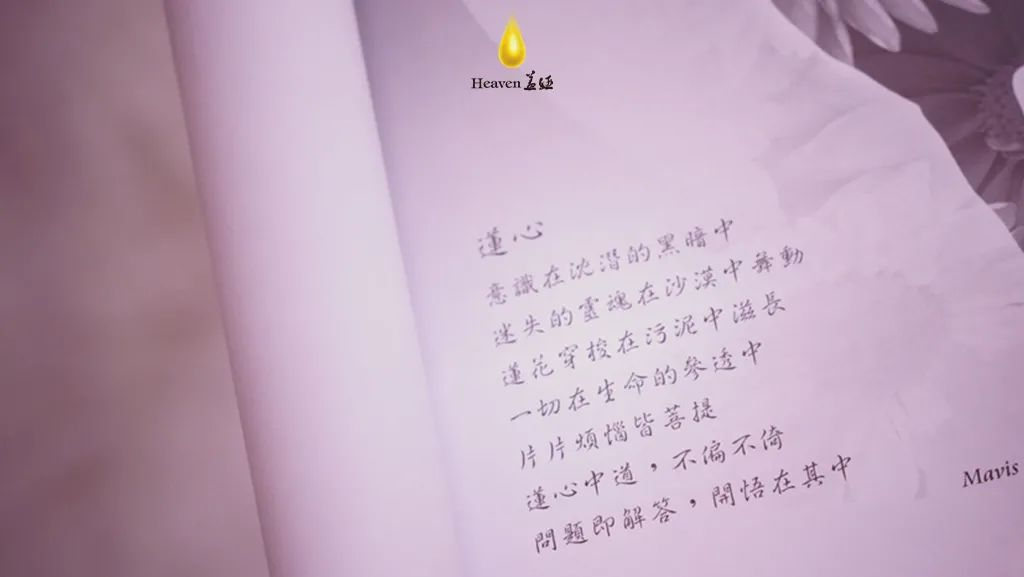 Heaven 蓋婭
蓮心
意識在沈潛的黑暗中
迷失的靈魂在沙漠中舞動
蓮花穿梭在污泥中滋長
一切在生命的參透中
片片煩惱皆菩提
蓮心中道，不偏不倚
問題即解答，開悟在其中
Mavis